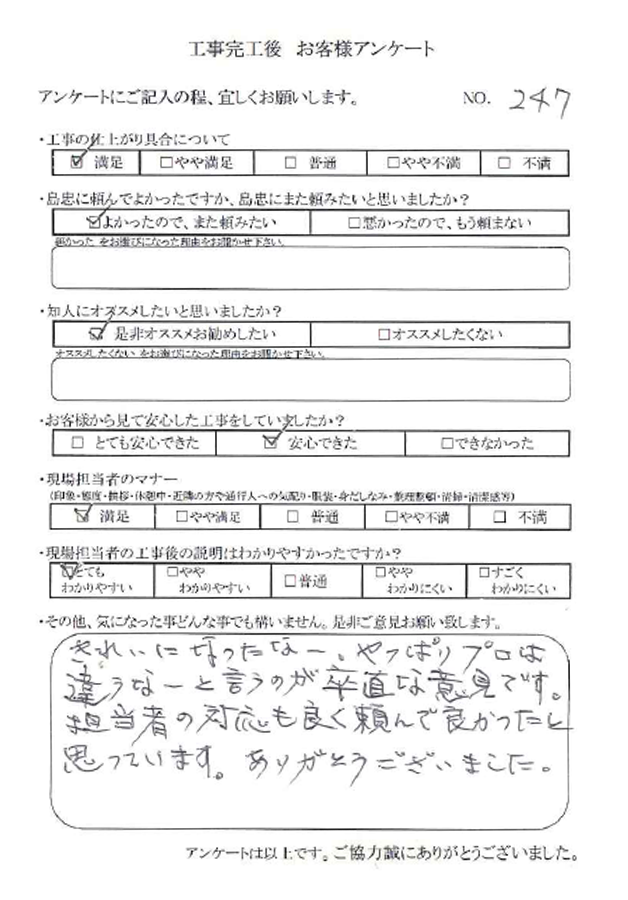 工事完工後 お客様アンケート
アンケートにご記入の程、宜しくお願いします。 NO. 247
・工事の仕上がり具合について
☑ 満足 □やや満足 □ 普通 □やや不満 □ 不満
・島忠に頼んでよかったですか、島忠にまた頼みたいと思いましたか？
☑よかったので、また頼みたい □悪かったので、もう頼まない
悪かった をお選びになった理由をお聞かせ下さい。
・知人にオススメしたいと思いましたか？
☑ 是非オススメお勧めしたい □オススメしたくない
オススメしたくない をお選びになった理由をお聞かせ下さい。
・お客様から見て安心した工事をしていましたか？
□ とても安心できた ☑ 安心できた □できなかった
・現場担当者のマナー
(印象・態度・挨拶・休憩中・近隣の方や通行人への気配り・服装・身だしなみ・整理整頓・清掃・清潔感等)
☑ 満足 □やや満足 □ 普通 □やや不満 □ 不満
・現場担当者の工事後の説明はわかりやすかったですか？
☑とても わかりやすい □やや わかりやすい □普通 □やや わかりにくい □すごく わかりにくい
・その他、気になった事どんな事でも構いません。是非ご意見お願い致します。
きれいになったなー、やっぱりプロは
違うなーと言うのが率直な意見です。
担当者の対応も良く頼んで良かったと
思っています。ありがとうございました。
アンケートは以上です。ご協力誠にありがとうございました。